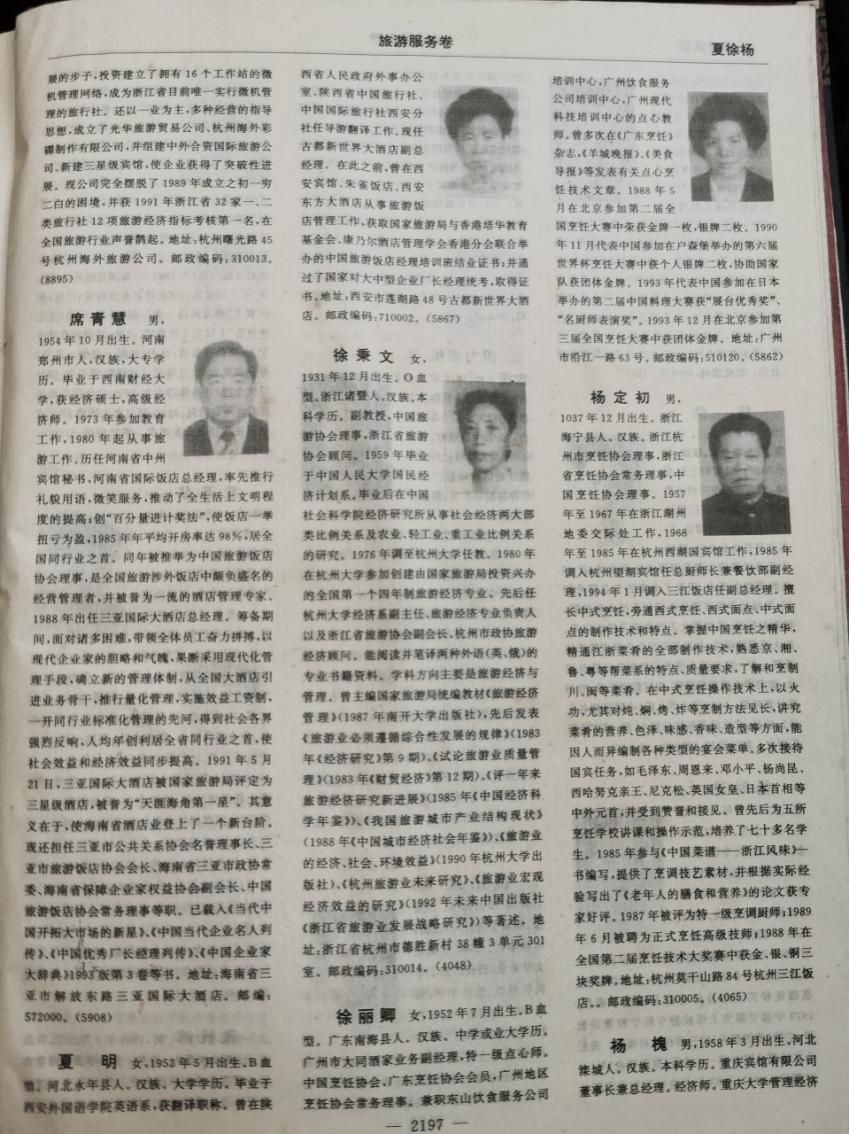 旅游服务卷
夏徐杨
展的步子,投资建立了拥有 16 个工作站的微
机管理网络,成为浙江省目前唯一实行微机管
理的旅行社。还以一业为主,多种经营的指导
思想,成立了光华旅游贸易公司、杭州海外彩
碟制作有限公司,并组建中外合资国际旅游公
司、新建三星级宾馆,使企业获得了突破性进
展。现公司完全摆脱了 1989 年成立之初一穷
二白的困境,并获 1991 年浙江省 32 家一、二
类旅行社 12 项旅游经济指标考核第一名,在
全国旅游行业声誉鹊起。地址:杭州曙光路 45
号杭州海外旅游公司。邮政编码:310013。
(8895)
席青慧 男,
1954 年 10 月出生。河南
郑州市人,汉族,大专学
历。毕业于西南财经大
学,获经济硕士,高级经
济师。1973 年参加教育
工作,1980 年起从事旅
游工作。历任河南省中州
宾馆秘书,河南省国际饭店总经理,率先推行
礼貌用语,微笑服务,推动了全生活上文明程
度的提高;创“百分量进计奖法”,使饭店一举
扭亏为盈,1985 年年平均开房率达 98%,居全
国同行业之首。同年被推举为中国旅游饭店
协会理事,是全国旅游涉外饭店中颇负盛名的
经营管理者,并被誉为一流的酒店管理专家。
1988 年出任三亚国际大酒店总经理。筹备期
间,面对诸多困难,带领全体员工奋力拼搏,以
现代企业家的胆略和气魄,果断采用现代化管
理手段,确立新的管理体制,从全国大酒店引
进业务骨干,推行量化管理,实施效益工资制,
一开同行业标准化管理的先河,得到社会各界
强烈反响,人均年创利居全省同行业之首,使
社会效益和经济效益同步提高。1991 年 5 月
21 日,三亚国际大酒店被国家旅游局评定为
三星级酒店,被誉为“天涯海角第一星”。其意
义在于,使海南省酒店业登上了一个新台阶。
现还担任三亚市公共关系协会名誉理事长、三
亚市旅游饭店协会会长、海南省三亚市政协常
委、海南省保障企业家权益协会副会长、中国
旅游饭店协会常务理事等职。已载入《当代中
国开拓大市场的新星》、《中国当代企业名人列
传》、《中国优秀厂长经理列传》、《中国企业家
大辞典》1993 版第 3 卷等书。地址:海南省三
亚市解放东路三亚国际大酒店。邮编:
572000。(5908)
夏 明 女,1952 年 5 月出生。B 血
型。河北永年县人。汉族。大学学历。毕业于
西安外国语学院英语系,获翻译职称。曾在陕
西省人民政府外事办公
室、陕西省中国旅行社、
中国国际旅行社西安分
社任导游翻译工作。现任
古都新世界大酒店副总
经理。在此之前,曾在西
安宾馆、朱雀饭店、西安
东方大酒店从事旅游饭
店管理工作,获取国家旅游局与香港培华教育
基金会、康乃尔酒店管理学会香港分会联合举
办的中国旅游饭店经理培训班结业证书;并通
过了国家对大中型企业厂长经理统考,取得证
书。地址:西安市莲湖路 48 号古都新世界大酒
店。邮政编码:710002。(5867)
徐秉文 女,
1931 年 12 月出生。O 血
型。浙江诸暨人。汉族。本
科学历。副教授,中国旅
游协会理事,浙江省旅游
协会顾问。1959 年毕业
于中国人民大学国民经
济计划系。毕业后在中国
社会科学院经济研究所从事社会经济两大部
类比例关系及农业、轻工业、重工业比例关系
的研究。1976 年调至杭州大学任教。1980 年
在杭州大学参加创建由国家旅游局投资兴办
的全国第一个四年制旅游经济专业。先后任
杭州大学经济系副主任、旅游经济专业负责人
以及浙江省旅游协会副会长、杭州市政协旅游
经济顾问。能阅读并笔译两种外语(英、俄)的
专业书籍资料。学科方向主要是旅游经济与
管理。曾主编国家旅游局统编教材《旅游经济
管理》(1987 年南开大学出版社),先后发表
《旅游业必须遵循综合性发展的规律》(1983
年《经济研究》第 9 期)、《试论旅游业质量管
理》(1983 年《财贸经济》第 12 期)、《评一年来
旅游经济研究新进展》(1985 年《中国经济科
学年鉴》)、《我国旅游城市产业结构现状》
(1988 年《中国城市经济社会年鉴》)、《旅游业
的经济、社会、环境效益》(1990 年杭州大学出
版社)、《杭州旅游业未来研究》、《旅游业宏观
经济效益的研究》(1992 年未来中国出版社
《浙江省旅游业发展战略研究》)等著述。地
址:浙江省杭州市德胜新村 38 幢 3 单元 301
室。邮政编码:310014。(4048)
徐丽卿 女,1952 年 7 月出生。B 血
型。广东南海县人。汉族。中学或业大学历。
广州市大同酒家业务副经理,特一级点心师。
中国烹饪协会、广东烹饪协会会员,广州地区
烹饪协会常务理事。兼职东山饮食服务公司
培训中心,广州饮食服务
公司培训中心,广州现代
科技培训中心的点心教
师。曾多次在《广东烹饪》
杂志,《羊城晚报》、《美食
导报》等发表有关点心烹
饪技术文章。1988 年 5
月在北京参加第二届全
国烹饪大赛中荣获金牌一枚,银牌二枚。1990
年 11 月代表中国参加在卢森堡举办的第六届
世界杯烹饪大赛中获个人银牌二枚,协助国家
队获团体金牌。1993 年代表中国参加在日本
举办的第二届中国料理大赛获“展台优秀奖”、
“名厨师表演奖”。1993 年 12 月在北京参加第
三届全国烹饪大赛中获团体金牌。地址:广州
市沿江一路 63 号。邮政编码:510120。(5862)
杨定初 男,
1037 年 12 月出生。浙江
海宁县人。汉族。浙江杭
州市烹饪协会理事,浙江
省烹饪协会常务理事,中
国烹饪协会理事。1957
年至 1967 年在浙江湖州
地委交际处工作,1968
年至 1985 年在杭州西湖国宾馆工作,1985 年
调入杭州望湖宾馆任总厨师长兼餐饮部副经
理,1994 年 1 月调入三江饭店任副总经理。擅
长中式烹饪,旁通西式烹饪、西式面点、中式面
点的制作技术和特点。掌握中国烹饪之精华,
精通江浙菜肴的全部制作技术,熟悉京、湘、
鲁、粤等帮菜系的特点、质量要求,了解和烹制
川、闽等菜肴。在中式烹饪操作技术上,以火
功,尤其对炖、焖、烤、炸等烹制方法见长,讲究
菜肴的营养、色泽、味感、香味、造型等方面,能
因人而异编制各种类型的宴会菜单。多次接待
国宾任务,如毛泽东、周恩来、邓小平、杨尚昆、
西哈努克亲王、尼克松、英国女皇、日本首相等
中外元首,并受到赞誉和接见。曾先后为五所
烹饪学校讲课和操作示范,培养了七十多名学
生。1985 年参与《中国菜谱——浙江风味》一
书编写,提供了烹调技艺素材,并根据实际经
验写出了《老年人的膳食和营养》的论文获专
家好评。1987 年被评为特一级烹调厨师;1989
年 6 月被聘为正式烹饪高级技师;1988 年在
全国第二届烹饪技术大奖赛中获金、银、铜三
块奖牌。地址:杭州莫干山路 84 号杭州三江饭
店。。邮政编码:310005。(4065)
杨 槐 男,1958 年 3 月出生。河北
滦城人。汉族。本科学历。重庆宾馆有限公司
董事长兼总经理。经济师。重庆大学管理经济
— 2197 —